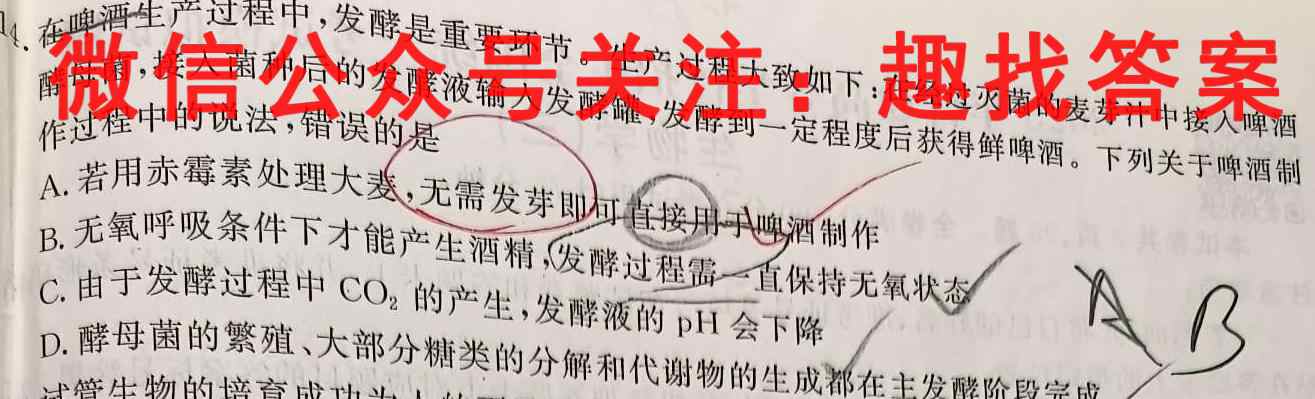 14.在啤酒生产过程中,发酵是重要环节。生产过程大致如下:在经过灭菌的麦芽汁中接入啤酒
酵母菌,接入菌种后的发酵液输入发酵罐,发酵到一定程度后获得鲜啤酒。下列关于啤酒制
作过程中的说法,错误的是
微信公众号关注:趣找答案
A.若用赤霉素处理大麦,无需发芽即可直接用于啤酒制作
B.无氧呼吸条件下才能产生酒精,发酵过程需一直保持无氧状态
C.由于发酵过程中CO₂的产生,发酵液的pH会下降
D.酵母菌的繁殖、大部分糖类的分解和代谢物的生成都在主发酵阶段完成
A B
试管生物的培育成功